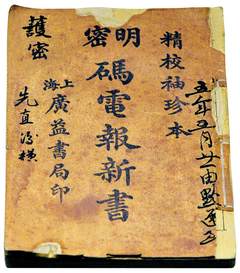 五年五月廿由黔
精校袖珍本
明密碼電報新書
上海廣益書局印
護密
先直後橫